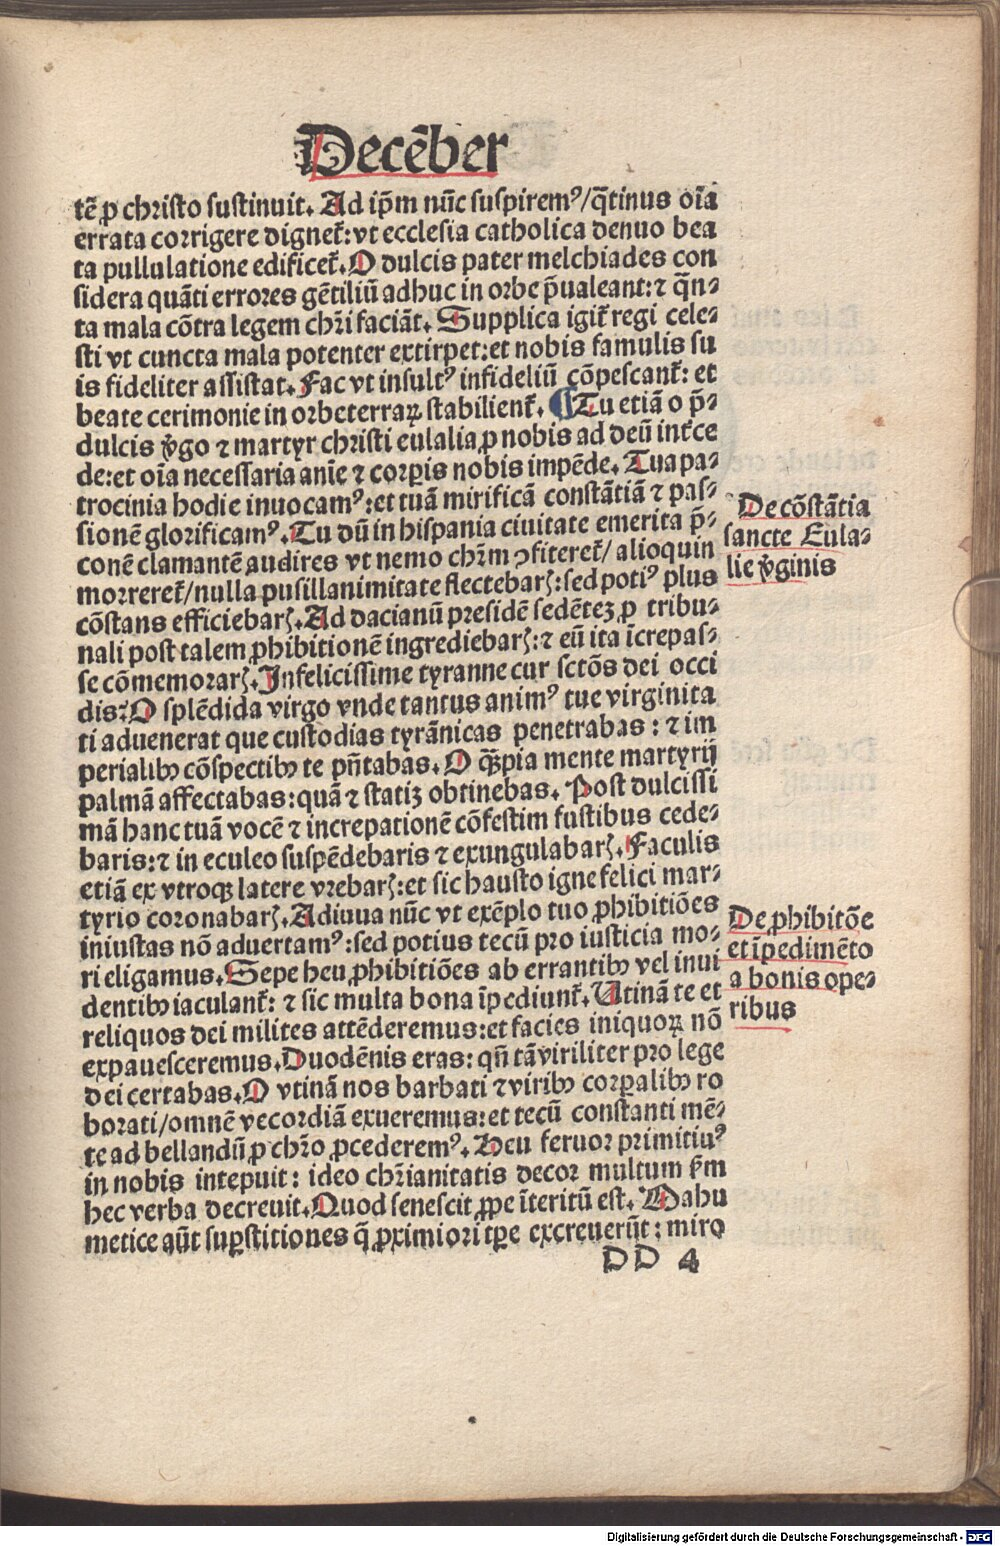 Decēber
tē ꝓ christo sustinuit. Ad ip̄m nūc suspirem⁹/q̄tinus oīa
errata corrigere dignet᷑: vt ecclesia catholica denuo bea
ta pullulatione edificet᷑. O dulcis pater melchiades con
sidera quāti errores gētiliū adhuc in orbe p̄ualeant: ⁊ q̄n⸗
ta mala cōtra legem chr̄i faciāt. Supplica igit᷑ regi cele⸗
sti vt cuncta mala potenter extirpet: et nobis famulis su
is fideliter assistat. Fac vt insult⁹ infideliū cōpescant᷑: et
beate cerimonie in orbeterraꝝ stabilient᷑. ¶ Tu etiā o p̄⸗
dulcis v̄go ⁊ martyr christi eulalia ꝓ nobis ad deū int᷑ce
de: et oīa necessaria anīe ⁊ corꝑis nobis impēde. Tua pa⸗
trocinia hodie inuocam⁹: et tuā mirificā constātiā ⁊ pas⸗
sionē glorificam⁹. Tu dū in hispania ciuitate emerita p̄⸗
conē clamantē audires vt nemo chr̄m ꝯfiteret᷑/ alioquin
morreret᷑/nulla pusillanimitate flectebarꝭ: sed poti⁹ plus
cōstans efficiebarꝭ. Ad dacianū presidē sedētez ꝓ tribu⸗
nali post talem ꝓhibitionē ingrediebarꝭ: ⁊ eū ita īcrepas⸗
se cōmemorarꝭ. Infelicissime tyranne cur sctōs dei occi
dis? O splēdida virgo vnde tantus anim⁹ tue virginita
ti aduenerat que custodias tyrānicas penetrabas: ⁊ im
perialibꝰ cōspectibꝰ te pn̄tabas. O ꝙ̄pia mente martyrij
palmā affectabas: quā ⁊ statiꝫ obtinebas. Post dulcissi
mā hanc tuā vocē ⁊ increpationē cōfestim fustibus cede⸗
baris: ⁊ in eculeo suspēdebaris ⁊ exungulabarꝭ. Faculis
etiā ex vtroqꝫ latere vrebarꝭ: et sic hausto igne felici mar⸗
tyrio coronabarꝭ. Adiuua nūc vt exēplo tuo ꝓhibitiōes
iniustas nō aduertam⁹: sed potius tecū pro iusticia mo⸗
ri eligamus. Sepe heu ꝓhibitiōes ab errantibꝰ vel inui
dentibꝰ iaculant᷑: ⁊ sic multa bona īpediunt᷑. Utinā te et
reliquos dei milites attēderemus: et facies iniquoꝝ nō
expauesceremus. Duodēnis eras: qn̄ tāviriliter pro lege
dei certabas. O vtinā nos barbati ⁊viribꝰ corꝑalibꝰ ro
borati/omnē vecordiā exueremus: et tecū constanti mē⸗
te ad bellandū ꝓ chr̄o ꝓcederem⁹. Heu feruor primitiu⁹
in nobis intepuit: ideo chr̄ianitatis decor multum s̄m
hec verba decreuit. Quod senescit ꝓpe īteritū est. Mahu
metice aūt suꝑstitiones q̄ ꝓximiori tꝑe excreuerūt: miro
DD 4
De cōstātia
sancte Eula⸗
lie v̄ginis
De ꝓhibitōe
et īpedimēto
a bonis ope⸗
ribus
Digitalisierung gefördert durch die Deutsche Forschungsgemeinschaft - DFG